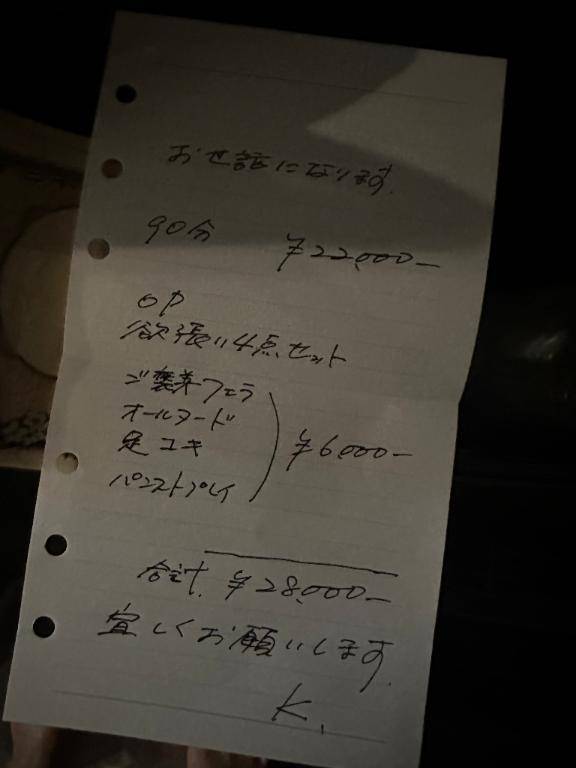 お世話になります.
90分 ¥22,000-
OP
欲張り4点セット
ご褒美フェラ
オールヌード
足コキ
パンストプレイ
¥6,000-
合計. ¥28,000-
宜しくお願いします.
K.